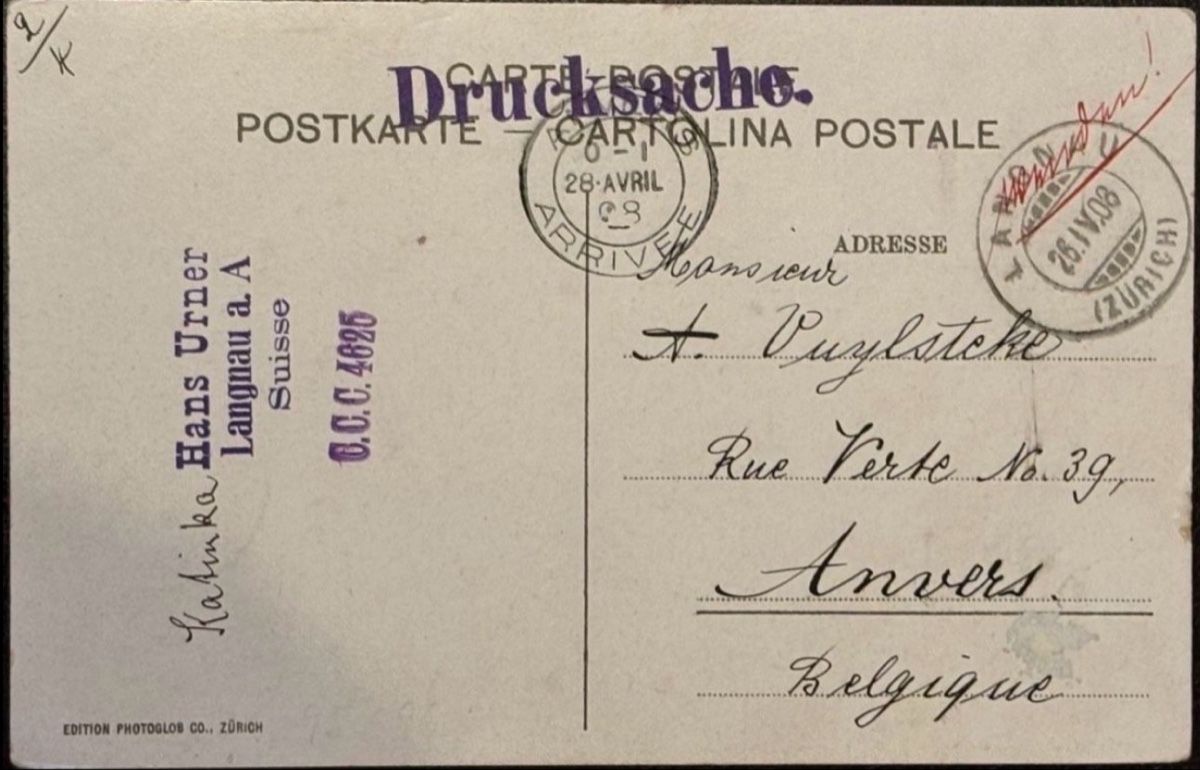 2/K
CARTE POSTALE
Drucksache.
POSTKARTE — CARTOLINA POSTALE
6-1
28·AVRIL
08
ARRIVÉE
LANGNAU
26.IV.08
(ZÜRICH)
ADRESSE
Monsieur
A. Vuylsteke
Rue Verte No. 39,
Anvers.
Belgique
Katinka Hans Urner
Langnau a. A
Suisse
C.C.C. 4625
EDITION PHOTOGLOB CO., ZÜRICH